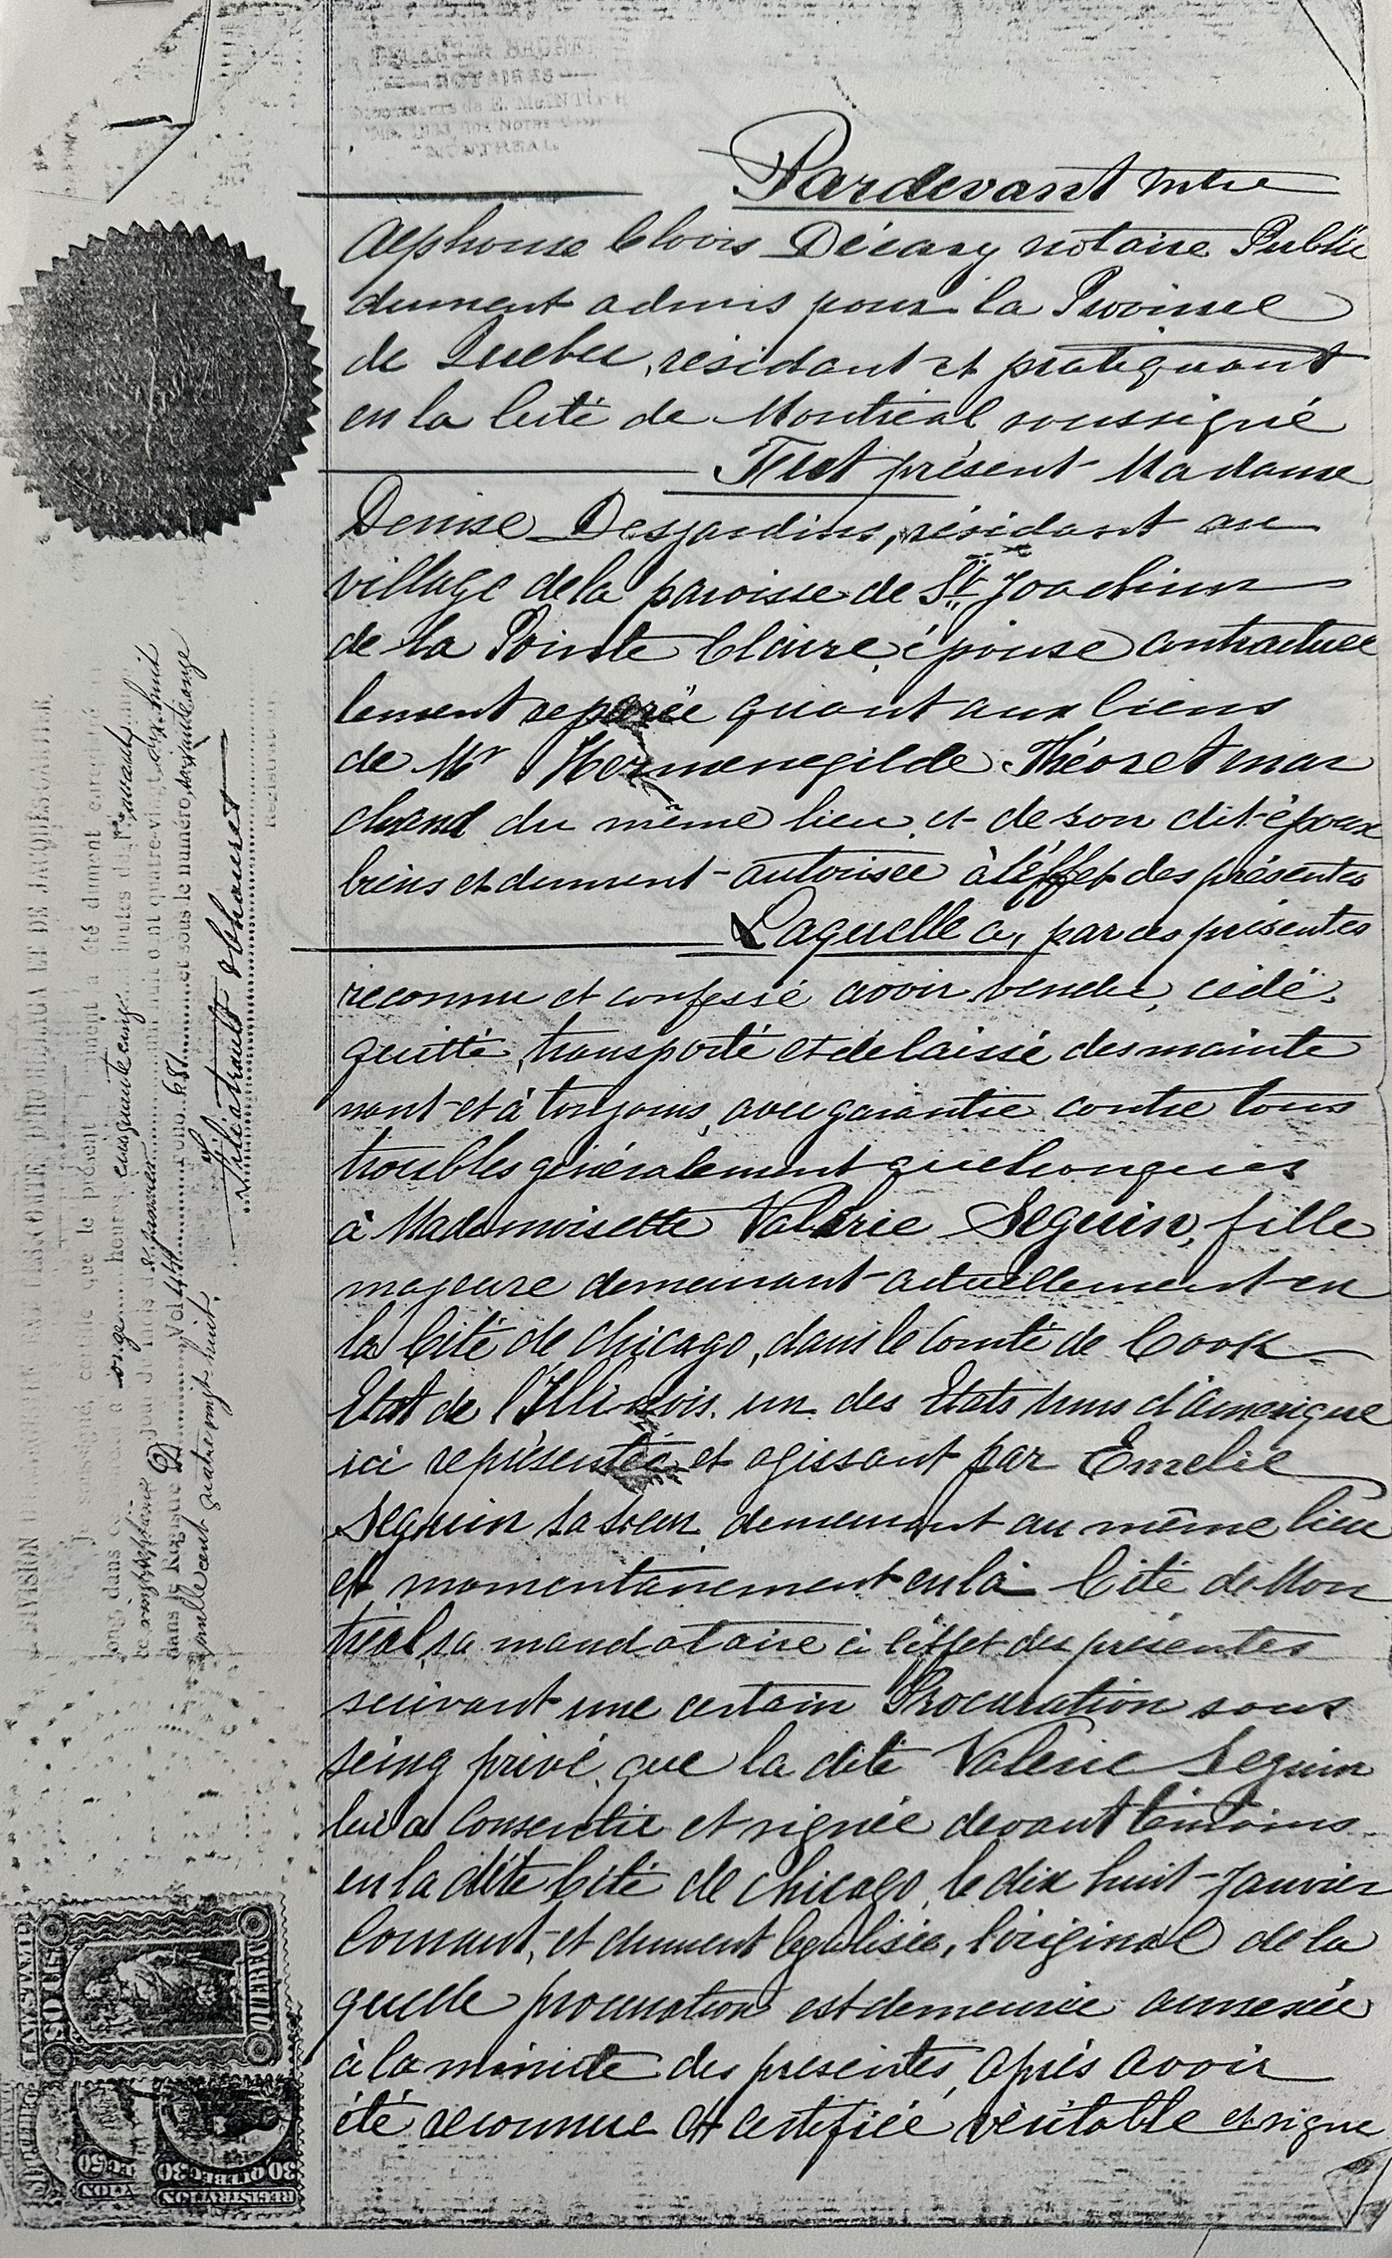 NOTAIRES
MONTREAL
Pardevant Mtre
Alphonse Clovis Décary notaire Public
dument admis pour la Province
de Quebec, résidant et pratiquant
en la Cité de Montréal, soussigné
Fut présent Madame
Denise Desjardins, résidant au
village de la paroisse de St Joachim
de la Pointe Claire, épouse contractuel
lement separée quant aux biens
de Mr Hermenegilde Théoret mar
chand du même lieu, et de son dit époux
biens et dument autorisée à l'éffet des présentes
Laquelle a, par ces présentes
reconnu et confessé avoir vendu, cédé,
quitté, transporté et delaissé des mainte
nant et à toujours, avec garantie contre tous
troubles généralement quelconques
à Mademoiselle Valérie Seguin, fille
majeure demeurant actuellement en
la Cité de Chicago, dans le Comté de Cook
Etat de l'Illinois, un des Etats Unis d'Amerique
ici représentée et agissant par Emelie
Seguin sa sœur, demeurant au même lieu
et momentanement en la Cité de Mon
tréal, sa mandataire à l'éffet des présentes
suivant une certain Procuration sous
seing privé, que la dite Valerie Seguin
lui a Consentie et signée devant témoins
en la dite Cité de Chicago, le dix huit Janvier
Courant, et dument legalisée, l'original de la
quelle procuration est demeurée annexée
à la minute des presentes, après avoir
été reconnue et certifiée véritable et signé
DIVISION D'ENREGISTREMENT DES COMTÉS D'HOCHELAGA ET DE JACQUES CARTIER.
Je soussigné, certifie que le présent document a été dument enregistré au
long dans ce bureau à onze heures cinquante cinq minutes de l'avant midi
le vingt septième jour du mois de janvier mil huit cent quatre-vingt dix huit
dans le Registre D Vol 44 Folio 681 et sous le numéro
mille cent quatre vingt huit.
Filiatrault &
Registrateur
LAW STAMP
SOUS
QUEBEC
REGISTRATION
30 QUEBEC 30